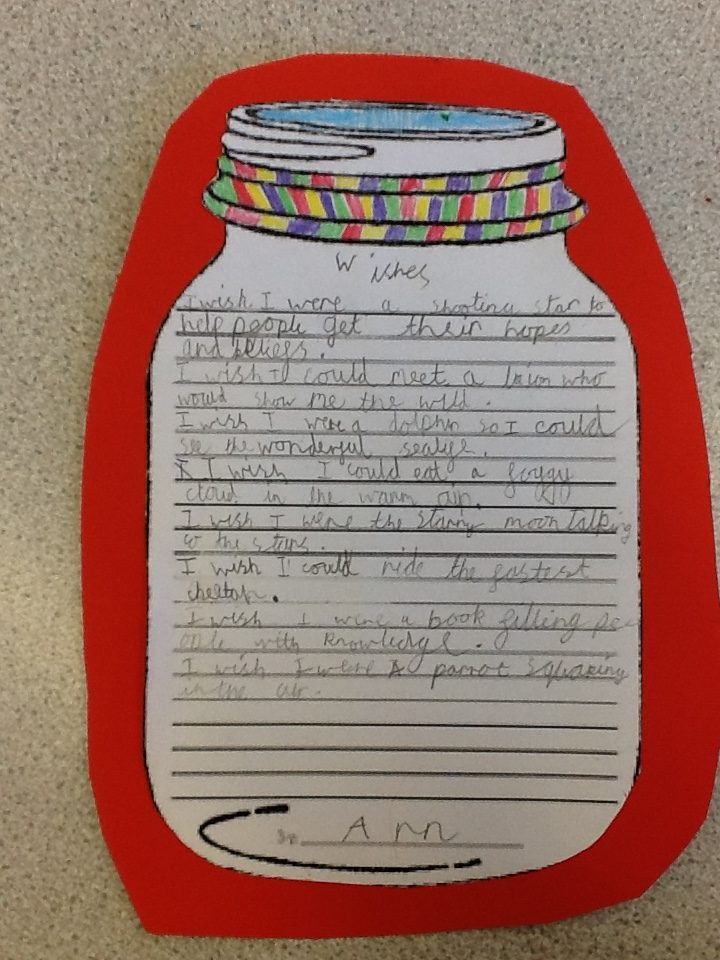 Wishes
I wish I were a shooting star to
help people get their hopes
and beliefs.
I wish I could meet a who
would show me the wild.
I wish I were a dolphin so I could
see the wonderful sealife.
I wish I could eat a foggy
cloud in the warm air.
I wish I were the starry moon talking
to the stars.
I wish I could ride the fastest
cheetah.
I wish I were a book filling pe
ople with knowledge.
I wish I were A parrot squaking
in the air.
by Ann